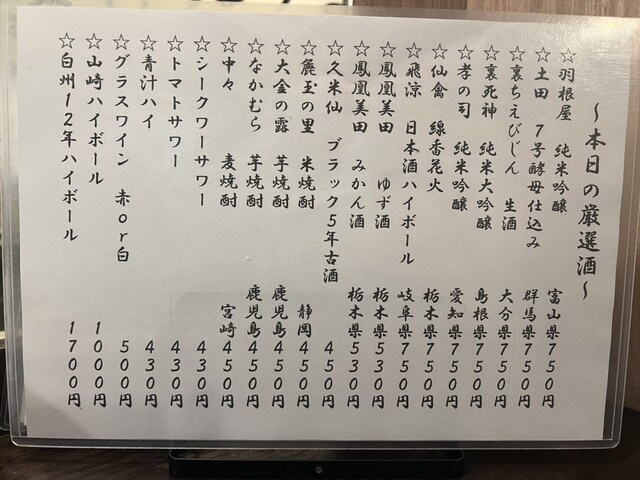 ～本日の厳選酒～
☆羽根屋 純米吟醸 富山県750円
☆土田 7号酵母仕込み 群馬県750円
☆裏ちえびじん 生酒 大分県750円
☆裏死神 純米大吟醸 島根県750円
☆孝の司 純米吟醸 愛知県750円
☆仙禽 線香花火 栃木県750円
☆飛涼 日本酒ハイボール 岐阜県750円
☆鳳凰美田 ゆず酒 栃木県530円
☆鳳凰美田 みかん酒 栃木県530円
☆久米仙 ブラック5年古酒 450円
☆麗玉の里 米焼酎 静岡450円
☆大金の露 芋焼酎 鹿児島450円
☆なかむら 芋焼酎 鹿児島450円
☆中々 麦焼酎 宮崎450円
☆シークワーサワー 430円
☆トマトサワー 430円
☆青汁ハイ 430円
☆グラスワイン 赤or白 500円
☆山崎ハイボール 1000円
☆白州12年ハイボール 1700円